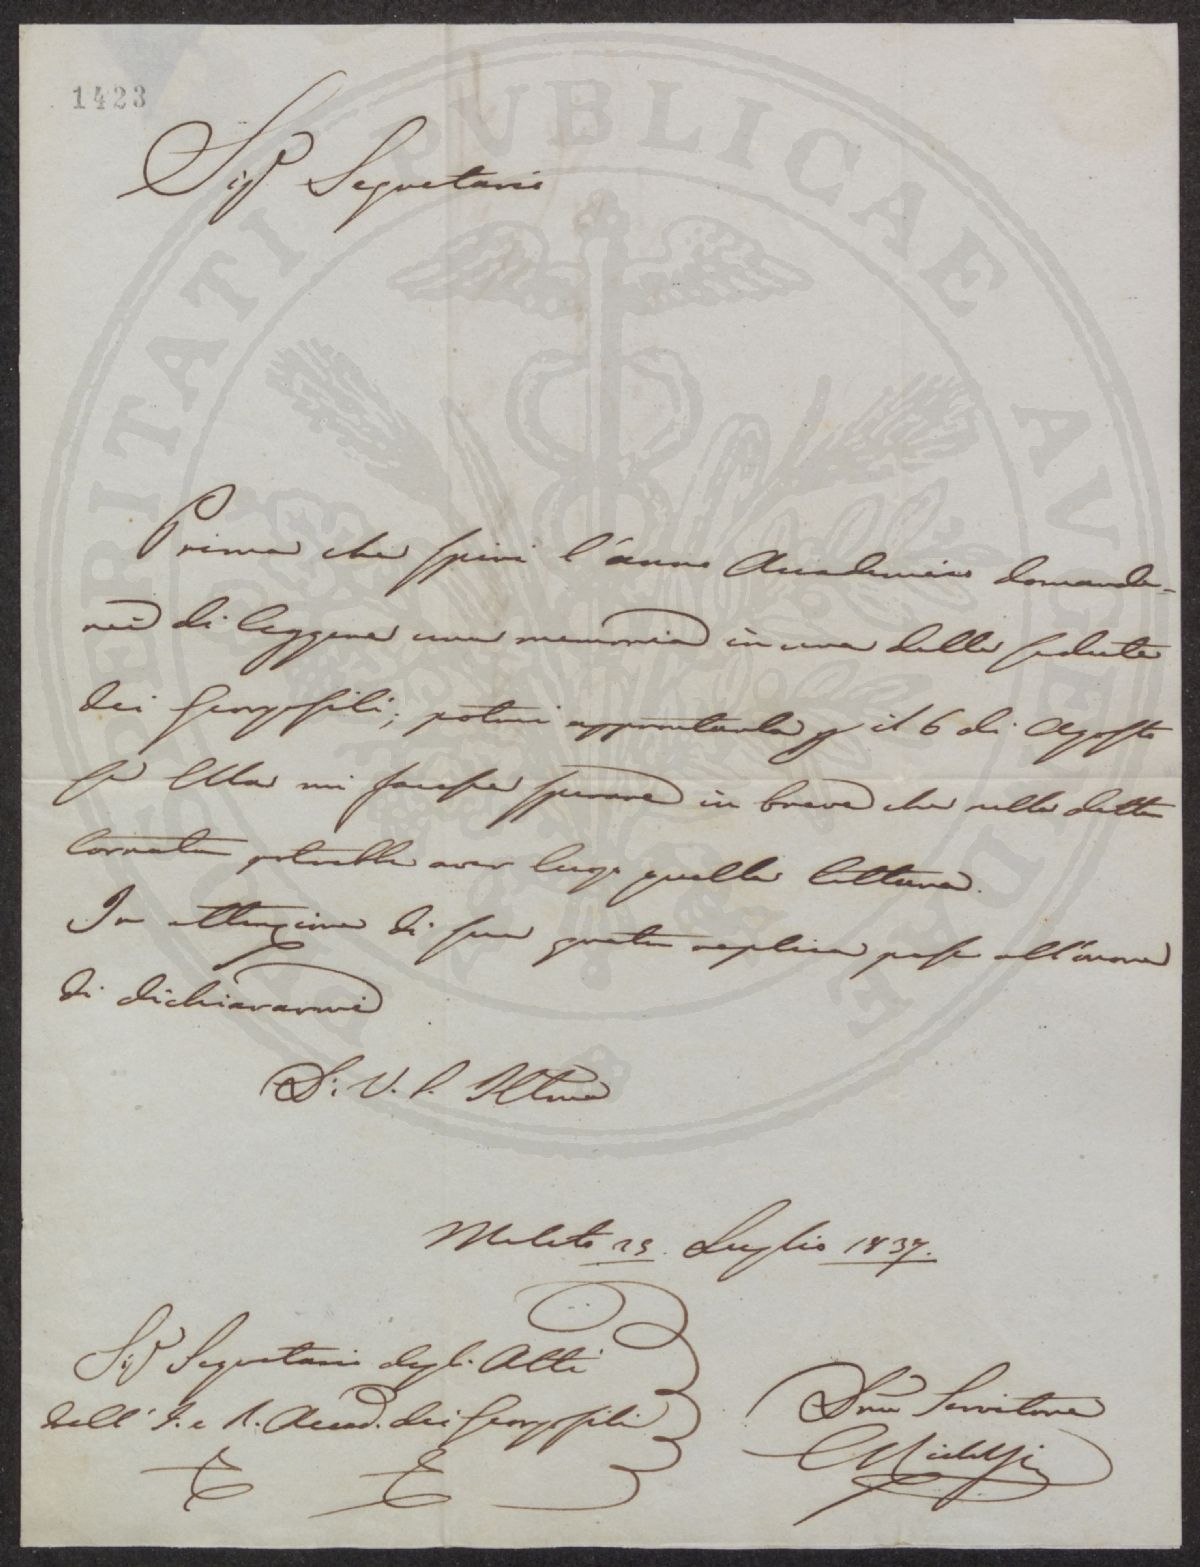 1423
Sigr Segretario
Prima che spiri l'anno Accademico domande-
rei di leggere una memoria in una delle sedute
dei Georgofili; potrei approntarla p il 6 di Agosto
se Ella mi facesse sperare in breve che nella detta
tornata potrebbe aver luogo quella lettura.
In attenzione di sua grata replica passo all'onore
di dichiararmi
Di V. S. Illma
Meleto 25. Luglio 1837.
Sigr Segretario degli Atti
dell' I. e R. Accad. dei Georgofili
Dmo Servitore
PROSPERITATI PUBLICAE AUGENDAE